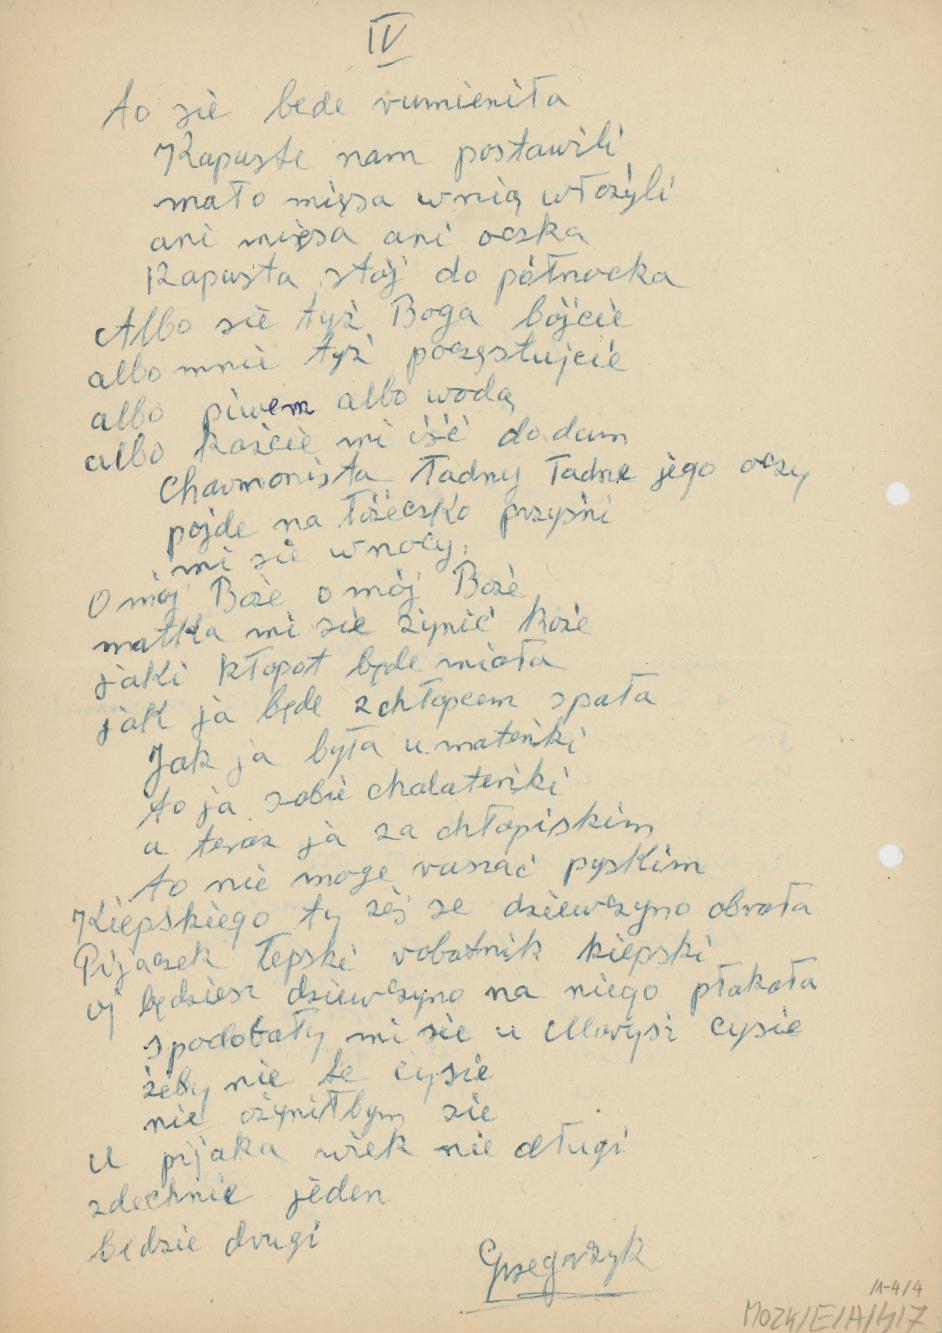 IV
to sie bede rumieniła
Kapuste nam postawili
mało mięsa wnią włożyli
ani mięsa ani oczka
Kapusta stoj do północka
Albo sie tyż Boga bójcie
albo mnie tyż poczęstujcie
albo piwem albo wodą
albo każcie mi iść do dum
Charmonista ładny ładne jego oczy
pojde na łóżeczko przyśni
mi sie wnocy.
O mój Boże o mój Boże
matka mi sie żynić każe
jaki kłopot będe miała
jak ja będe zchłopcem spała
Jak ja była u mateńki
to ja sobie chalateńki
a teraz ja za chłopiskim
to nie moge ruszać pyskim
Kiepskiego ty żeś se dziewczyno obrała
Pijaczek łepski robotnik kiepski
oj będziesz dziewczyno na niego płakała
spodobały mi sie u Marysi cysie
żeby nie te cysie
nie ożyniłbym sie
U pijaka wiek nie długi
zdechnie jeden
będzie drugi
Grzegorzyk
/1-4/4
MOZK/E/A/4/7